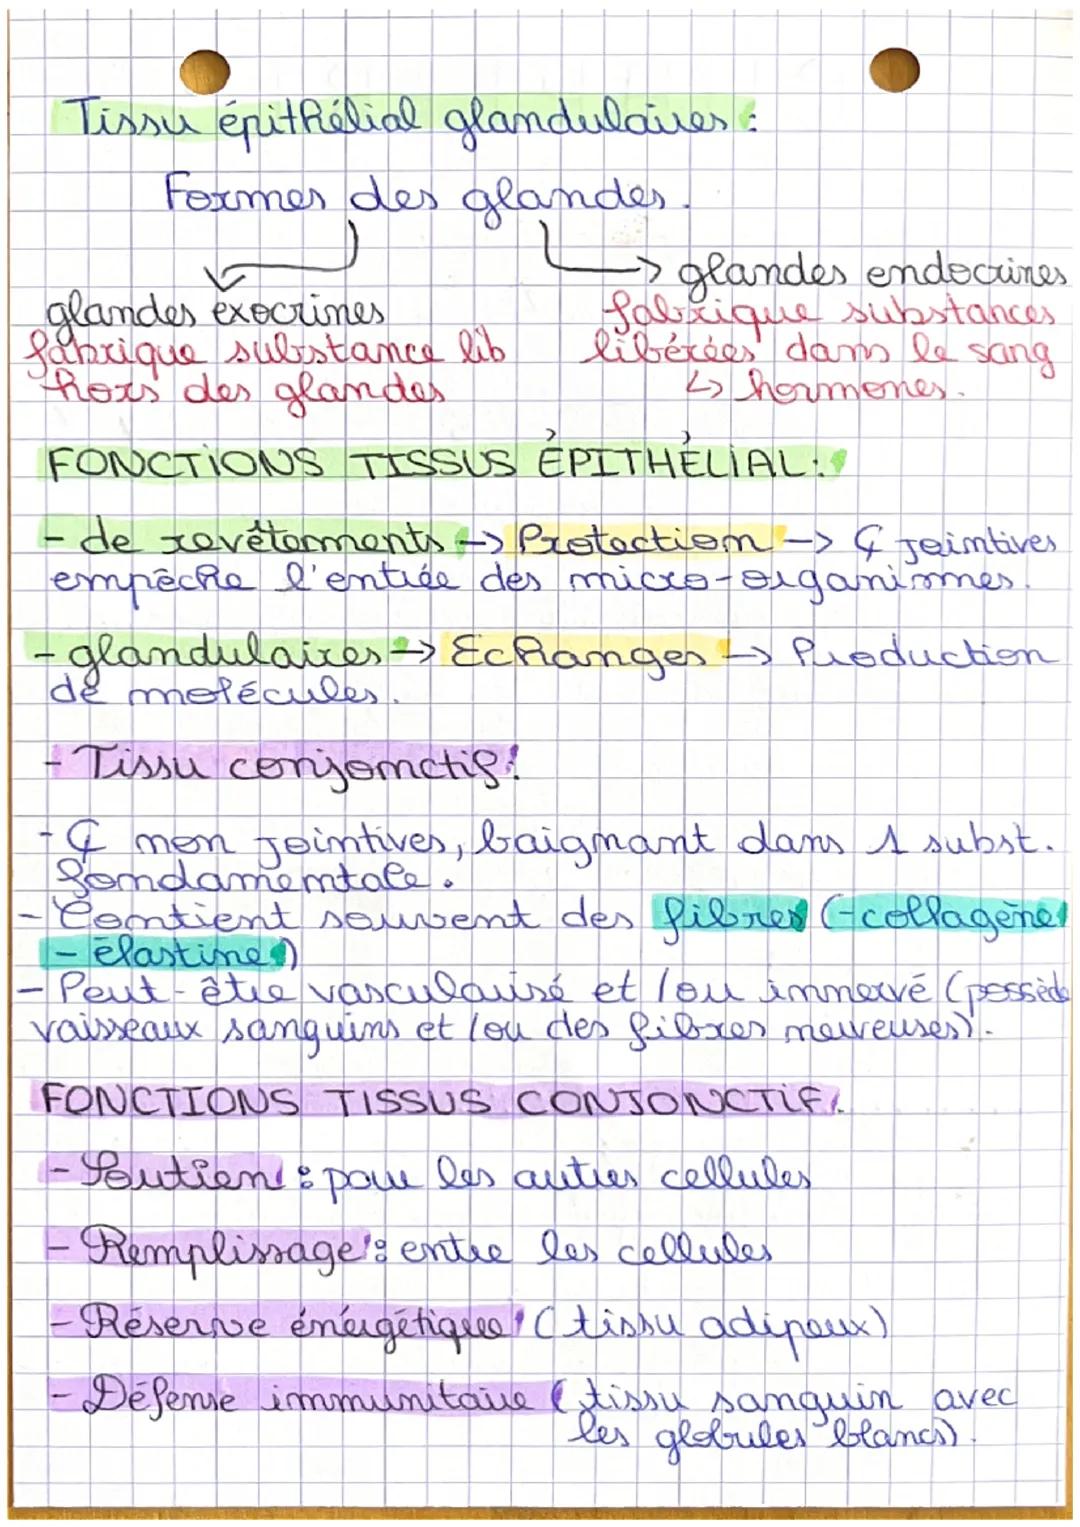 Tissu épithélial glandulaires :
Formes des glandes.
glandes exocrines
fabrique substance lib
hors des glandes
→ glandes endocrines
fabrique substances
libérées dans le sang
↳ hormones.
FONCTIONS TISSUS ÉPITHÉLIAL :
- de revêtements → Protection → Ç jointives
empêche l'entrée des micro-organismes.
- glandulaires → Echanges → Production
de molécules.
- Tissu conjonctif :
- Ç non jointives, baignant dans 1 subst.
fondamentale.
- Contient souvent des fibres (-collagène
- élastine)
- Peut-être vascularisé et /ou innervé (possède
vaisseaux sanguins et /ou des fibres neuveuses).
FONCTIONS TISSUS CONJONCTIF.
- Soutien : pour les autres cellules
- Remplissage : entre les cellules
- Réserve énergétique (tissu adipeux)
- Défense immunitaire (tissu sanguin avec
les globules blancs).